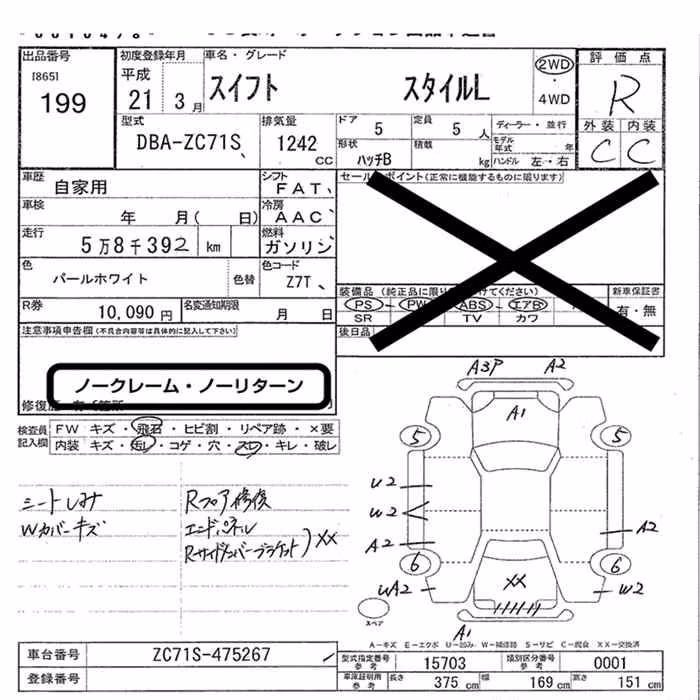 出品番号
[865]
199
初度登録年月
平成
21 3月
車名・グレード
スイフト スタイルL
2WD
・
4WD
評価点
R
外装 内装
C C
型式
DBA-ZC71S
排気量
1242
CC
ドア
5
定員
5 人
形状
ハッチB
積載
kg
ディーラー・並行
モデル年式 年
ハンドル 左・右
車歴
自家用
シフト
FAT
車検
年 月( 日)
冷房
AAC
走行
5万8千392 km
燃料
ガソリン
色
パールホワイト
色替
色コード
Z7T
R券
10,090円
名変通知期限
月 日
ポイント(正常に機能するものに限ります)
装備品
PS PW ABS エアB
SR TV カワ
新車保証書
有・無
後日品
注意事項申告欄(不具合内容等は具体的に記入して下さい)
ノークレーム・ノーリターン
検査員記入欄
FW キズ・飛石・ヒビ割・リペア跡・×要
内装 キズ・汚レ・コゲ・穴・スレ・キレ・破レ
シートしみ
Wカバーキズ
Rフロア修復
エンドパネル
XX
A3P A2
A1
5 5
U2
W2
A2 A2
6 6
UA2 XX W2
A1
スペア
A-キズ E-エクボ U-凹み W-補修跡 S-サビ C-腐食 XX-交換済
車台番号
ZC71S-475267
登録番号
型式指定番号
参考
15703
類別区分番号
参考
0001
車庫証明用
参考
長さ 375 cm 幅 169 cm 高さ 151 cm